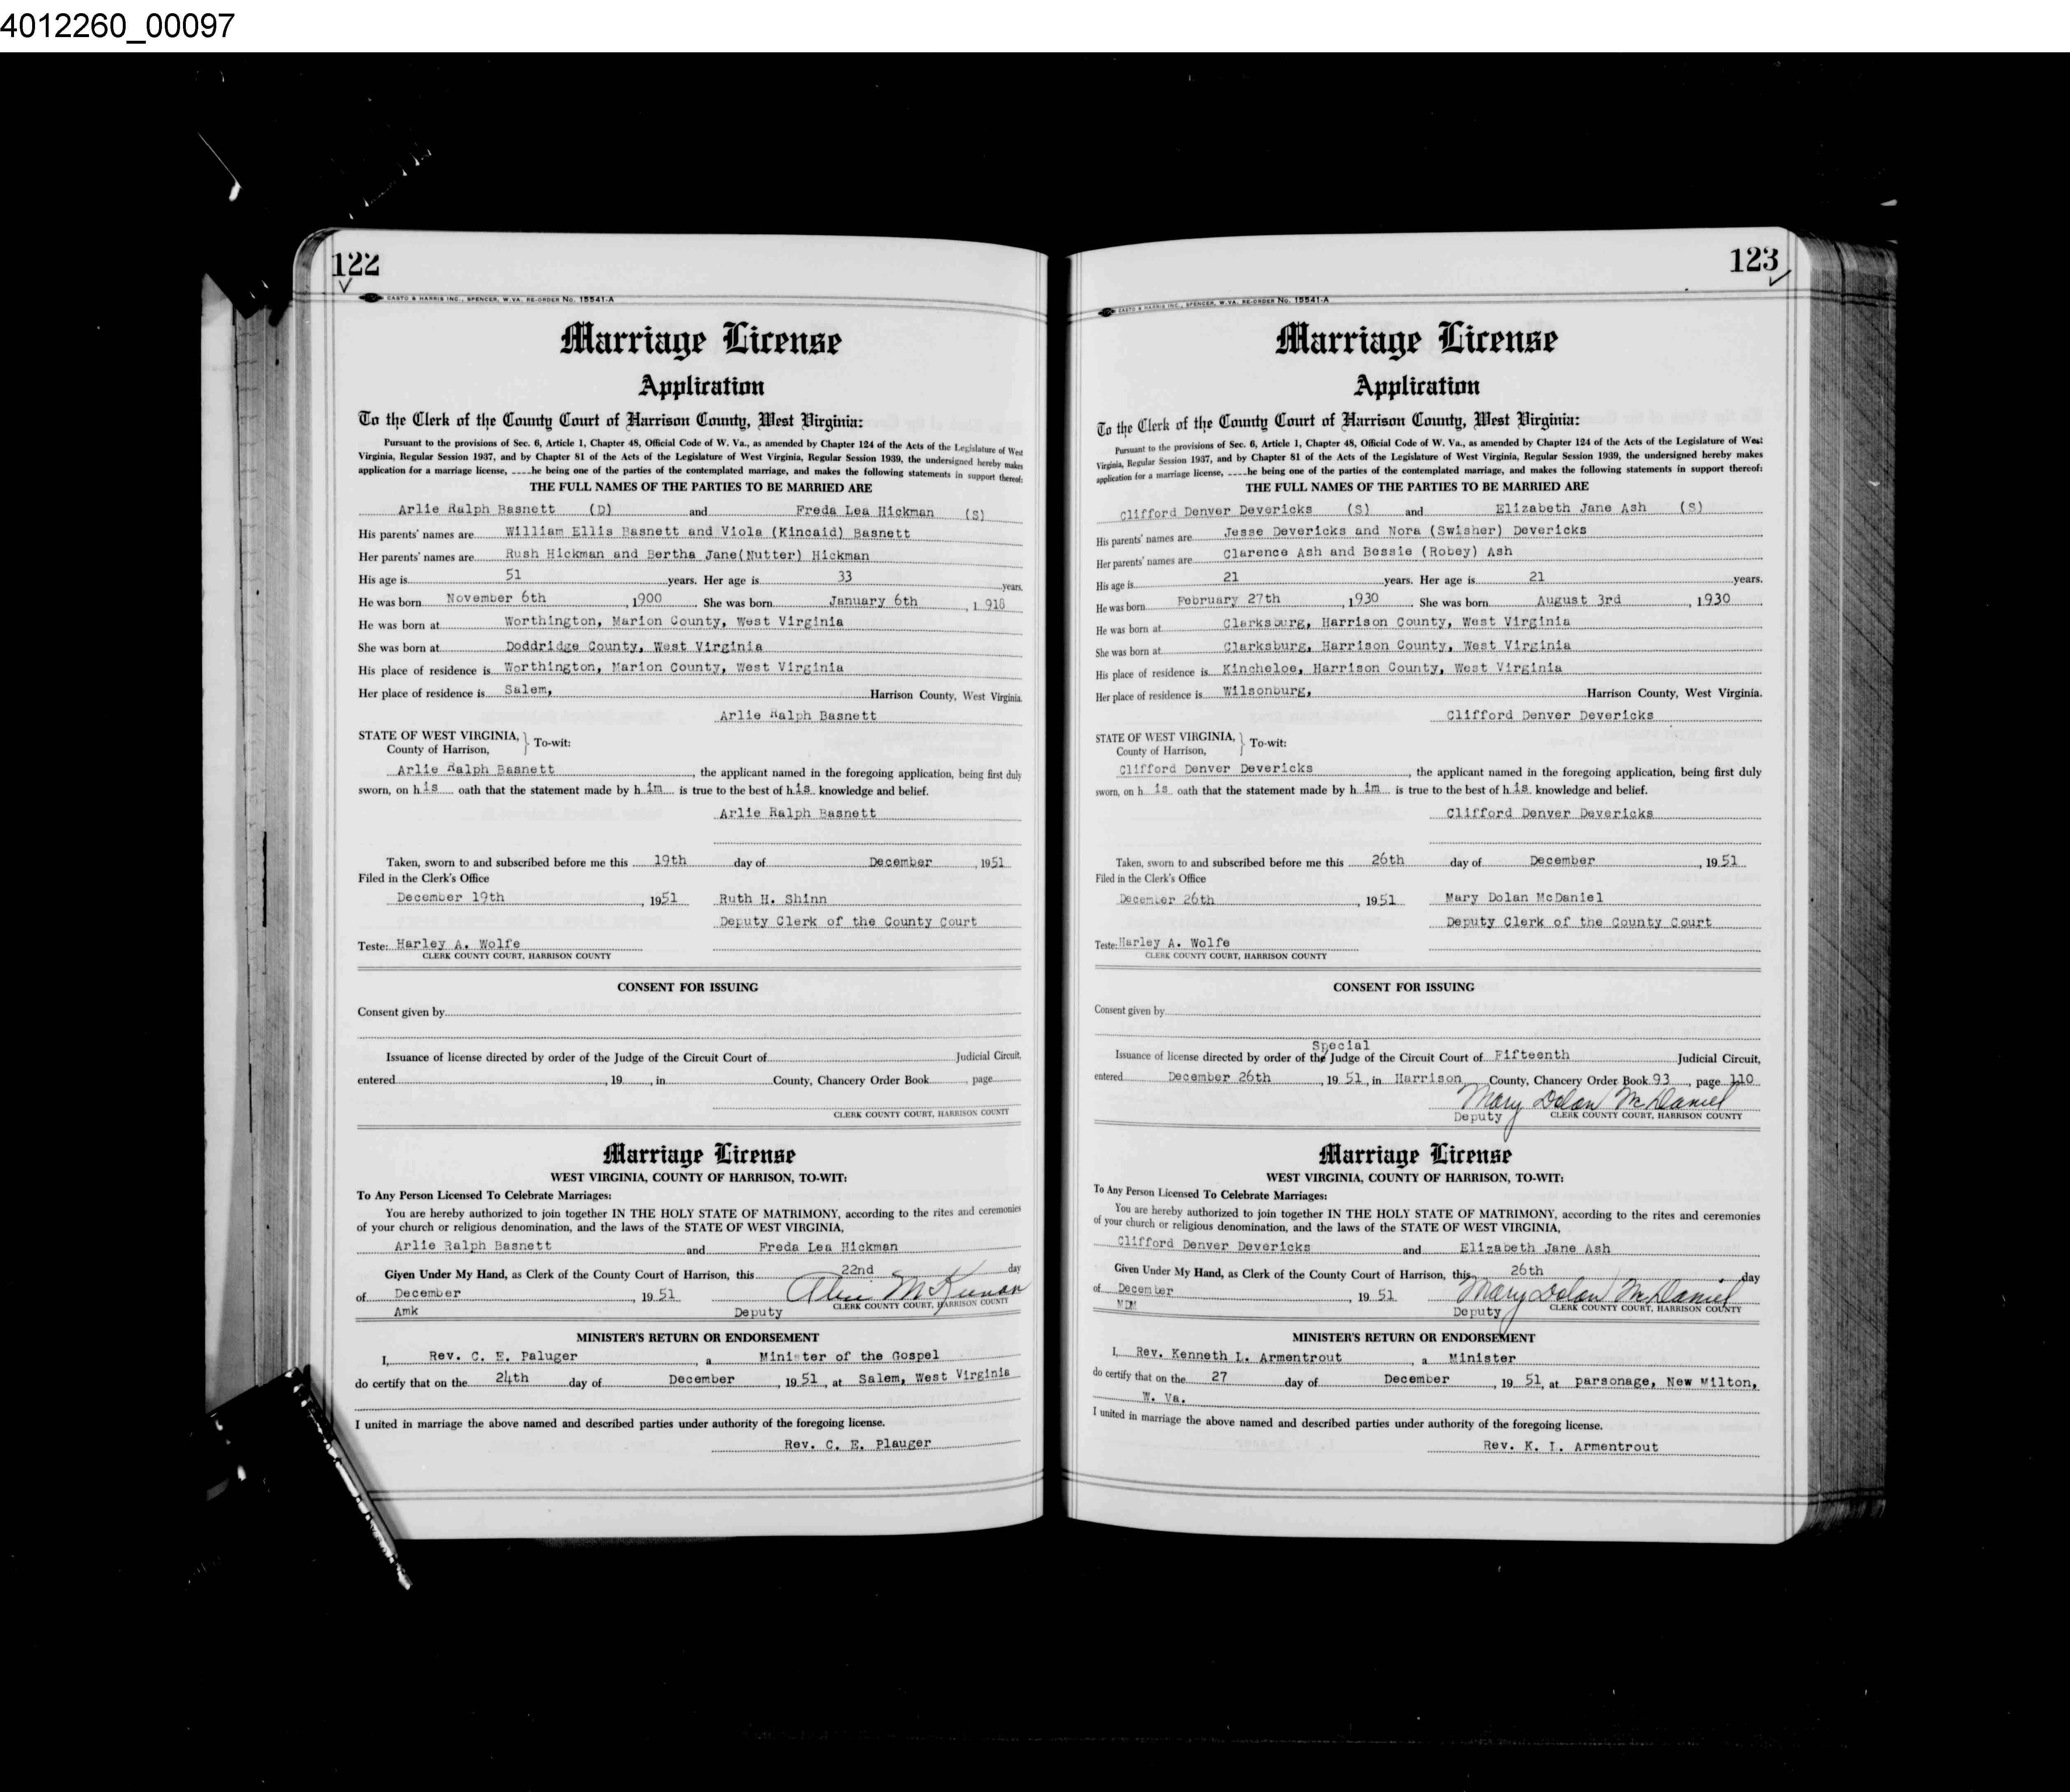 4012260_00097
122
CASTO & HARRIS INC., SPENCER, W.VA. RE-ORDER No. 15541-A
Marriage License
Application
To the Clerk of the County Court of Harrison County, West Virginia:
Pursuant to the provisions of Sec. 6, Article 1, Chapter 48, Official Code of W. Va., as amended by Chapter 124 of the Acts of the Legislature of West
Virginia, Regular Session 1937, and by Chapter 81 of the Acts of the Legislature of West Virginia, Regular Session 1939, the undersigned hereby makes
application for a marriage license, ____he being one of the parties of the contemplated marriage, and makes the following statements in support thereof:
THE FULL NAMES OF THE PARTIES TO BE MARRIED ARE
Arlie Ralph Basnett (D) and Freda Lea Hickman (S)
His parents' names are William Ellis Basnett and Viola (Kincaid) Basnett
Her parents' names are Rush Hickman and Bertha Jane(Nutter) Hickman
His age is 51 years. Her age is 33 years.
He was born November 6th, 1900 She was born January 6th, 1918
He was born at Worthington, Marion County, West Virginia
She was born at Doddridge County, West Virginia
His place of residence is Worthington, Marion County, West Virginia
Her place of residence is Salem, Harrison County, West Virginia.
Arlie Ralph Basnett
STATE OF WEST VIRGINIA, } To-wit:
County of Harrison,
Arlie Ralph Basnett, the applicant named in the foregoing application, being first duly
sworn, on his oath that the statement made by him is true to the best of his knowledge and belief.
Arlie Ralph Basnett
Taken, sworn to and subscribed before me this 19th day of December, 1951
Filed in the Clerk's Office
December 19th, 1951 Ruth H. Shinn
Deputy Clerk of the County Court
Teste: Harley A. Wolfe
CLERK COUNTY COURT, HARRISON COUNTY
CONSENT FOR ISSUING
Consent given by
Issuance of license directed by order of the Judge of the Circuit Court of Judicial Circuit,
entered, 19, in County, Chancery Order Book, page
CLERK COUNTY COURT, HARRISON COUNTY
Marriage License
WEST VIRGINIA, COUNTY OF HARRISON, TO-WIT:
To Any Person Licensed To Celebrate Marriages:
You are hereby authorized to join together IN THE HOLY STATE OF MATRIMONY, according to the rites and ceremonies
of your church or religious denomination, and the laws of the STATE OF WEST VIRGINIA,
Arlie Ralph Basnett and Freda Lea Hickman
Given Under My Hand, as Clerk of the County Court of Harrison, this 22nd day
of December, 1951
Amk Deputy CLERK COUNTY COURT, HARRISON COUNTY
MINISTER'S RETURN OR ENDORSEMENT
I, Rev. C. E. Paluger, a Minister of the Gospel
do certify that on the 24th day of December, 1951, at Salem, West Virginia
I united in marriage the above named and described parties under authority of the foregoing license.
Rev. C. E. Plauger
123
CASTO & HARRIS INC., SPENCER, W.VA. RE-ORDER No. 15541-A
Marriage License
Application
To the Clerk of the County Court of Harrison County, West Virginia:
Pursuant to the provisions of Sec. 6, Article 1, Chapter 48, Official Code of W. Va., as amended by Chapter 124 of the Acts of the Legislature of West
Virginia, Regular Session 1937, and by Chapter 81 of the Acts of the Legislature of West Virginia, Regular Session 1939, the undersigned hereby makes
application for a marriage license, ____he being one of the parties of the contemplated marriage, and makes the following statements in support thereof:
THE FULL NAMES OF THE PARTIES TO BE MARRIED ARE
Clifford Denver Devericks (S) and Elizabeth Jane Ash (S)
His parents' names are Jesse Devericks and Nora (Swisher) Devericks
Her parents' names are Clarence Ash and Bessie (Robey) Ash
His age is 21 years. Her age is 21 years.
He was born February 27th, 1930 She was born August 3rd, 1930
He was born at Clarksburg, Harrison County, West Virginia
She was born at Clarksburg, Harrison County, West Virginia
His place of residence is Kincheloe, Harrison County, West Virginia
Her place of residence is Wilsonburg, Harrison County, West Virginia.
Clifford Denver Devericks
STATE OF WEST VIRGINIA, } To-wit:
County of Harrison,
Clifford Denver Devericks, the applicant named in the foregoing application, being first duly
sworn, on his oath that the statement made by him is true to the best of his knowledge and belief.
Clifford Denver Devericks
Taken, sworn to and subscribed before me this 26th day of December, 1951
Filed in the Clerk's Office
December 26th, 1951 Mary Dolan McDaniel
Deputy Clerk of the County Court
Teste: Harley A. Wolfe
CLERK COUNTY COURT, HARRISON COUNTY
CONSENT FOR ISSUING
Consent given by
Special
Issuance of license directed by order of the Judge of the Circuit Court of Fifteenth Judicial Circuit,
entered December 26th, 1951, in Harrison County, Chancery Order Book 93, page 110
Mary Dolan McDaniel
Deputy CLERK COUNTY COURT, HARRISON COUNTY
Marriage License
WEST VIRGINIA, COUNTY OF HARRISON, TO-WIT:
To Any Person Licensed To Celebrate Marriages:
You are hereby authorized to join together IN THE HOLY STATE OF MATRIMONY, according to the rites and ceremonies
of your church or religious denomination, and the laws of the STATE OF WEST VIRGINIA,
Clifford Denver Devericks and Elizabeth Jane Ash
Given Under My Hand, as Clerk of the County Court of Harrison, this 26th day
of December, 1951 Mary Dolan McDaniel
MDM Deputy CLERK COUNTY COURT, HARRISON COUNTY
MINISTER'S RETURN OR ENDORSEMENT
I, Rev. Kenneth L. Armentrout, a Minister
do certify that on the 27 day of December, 1951, at parsonage, New Milton,
W. Va.
I united in marriage the above named and described parties under authority of the foregoing license.
Rev. K. L. Armentrout